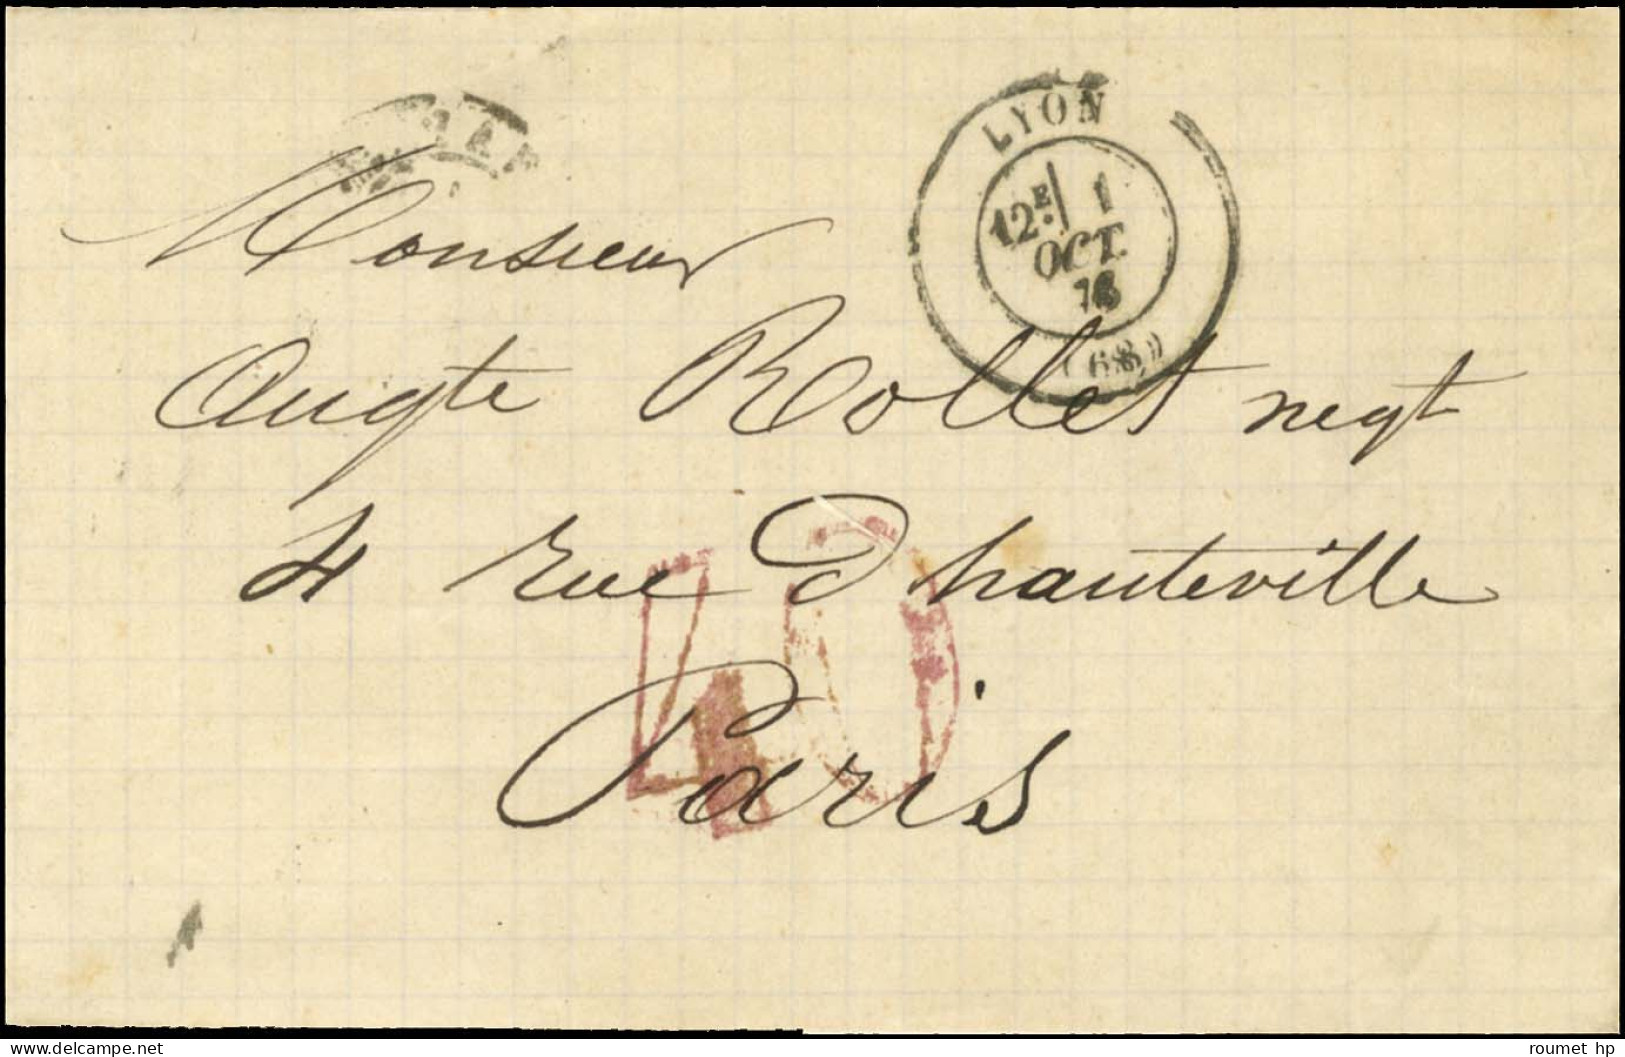 LYON
12E 1
OCT.
76
(68)
Monsieur
Augte Rollet negt
4 rue d'hauteville
40
Paris
delcampe.net
roumet hp